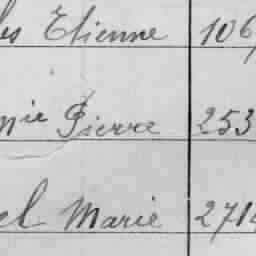 les Etienne 106
nie Pierre 253
el Marie 2714